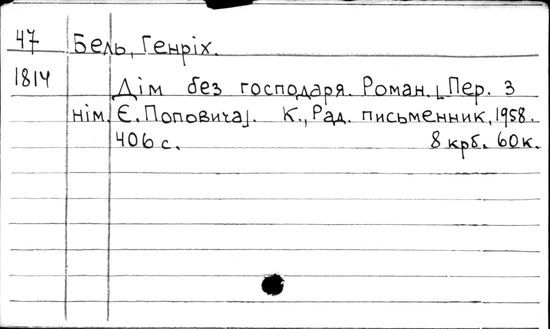 47 Бель, Генріх.
1814 Дім без господаря. Роман. [Пер. з
нім. Є. Поповича]. К., Рад. письменник, 1958.
406 с. 8 крб. 60 к.